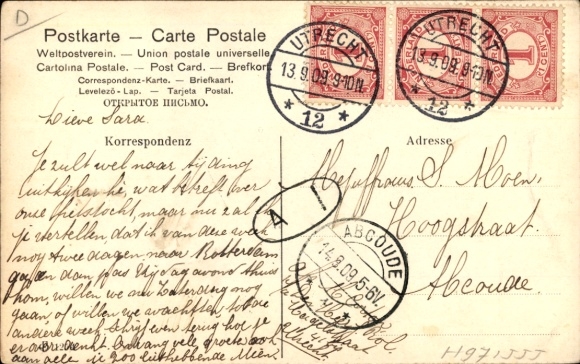 D
Postkarte — Carte Postale
Weltpostverein. — Union postale universelle.
Cartolina Postale. — Post Card. — Brefkort
Correspondenz-Karte. — Briefkaart.
Levelező-Lap. — Tarjeta Postal.
ОТКРЫТОЕ ПИСЬМО.
UTRECHT
13.9.09.9-10N.
* 12 *
UTRECHT
13.9.09.9-10N.
* 12 *
1
1
Lieve Sara.
Korrespondenz
Adresse
Je zult wel naar tijding
uitkijken he, wat betreft over
onze fietstocht, maar nu zal ik
je vertellen, dat ik van deze week
nog twee dagen naar Rotterdam
ga en dan pas Vrijdagavond thuis
kom, willen we nu Zaterdag nog
gaan of willen we wachten, tot de
andere week, schrijf even terug hoe je
er over denkt. Ontvang vele groeten ook
aan alle je zoo liefhebbende Mien.
Mejuffrouw S. Moen.
Hoogstraat.
Abcoude.
A
ABCOUDE
14.9.09.5-6V.
Utrecht
H971555